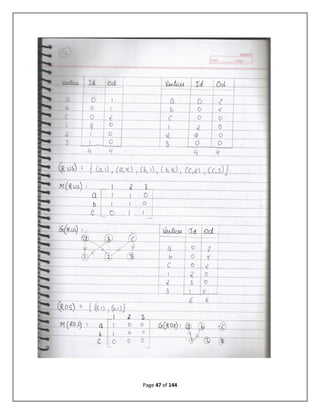 Vertices Id Od Vertices Id Od
a 0 1 a 0 2
b 0 1 b 0 2
c 0 2 c 0 0
1 2 0 1 2 0
2 1 0 2 2 0
3 1 0 3 0 0
4 4 4 4
(RUS) = { (a,1), (a,2), (b,1), (b,2), (c,2), (c,3)}
M(RUS) = 1 2 3
a 1 1 0
b 1 1 0
c 0 1 1
G(RUS) = Vertices Id Od
a b c
1 2 3
a 0 2
b 0 2
c 0 2
1 2 0
2 3 0
3 1 0
6 6
(R∩S) = { (a,1), (b,1)}
M(R∩S) = 1 2 3 G(R∩S): a b c
a 1 0 0
b 1 0 0
c 0 0 0 1 2 3
Page 47 of 144